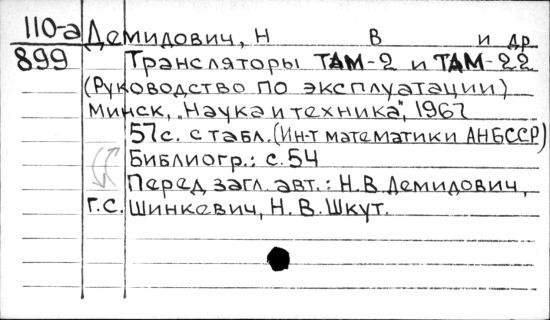 110-а
899
Демидович, Н В и др
Трансляторы ТАМ-2 и ТАМ-22
(Руководство по эксплуатации)
Минск, "Наука и техника", 1967
57с. с табл. (Ин-т математики АНБССР)
Библиогр.: с. 54
Перед загл. авт.: Н.В. Демидович,
Г.С. Шинкевич, Н.В. Шкут.